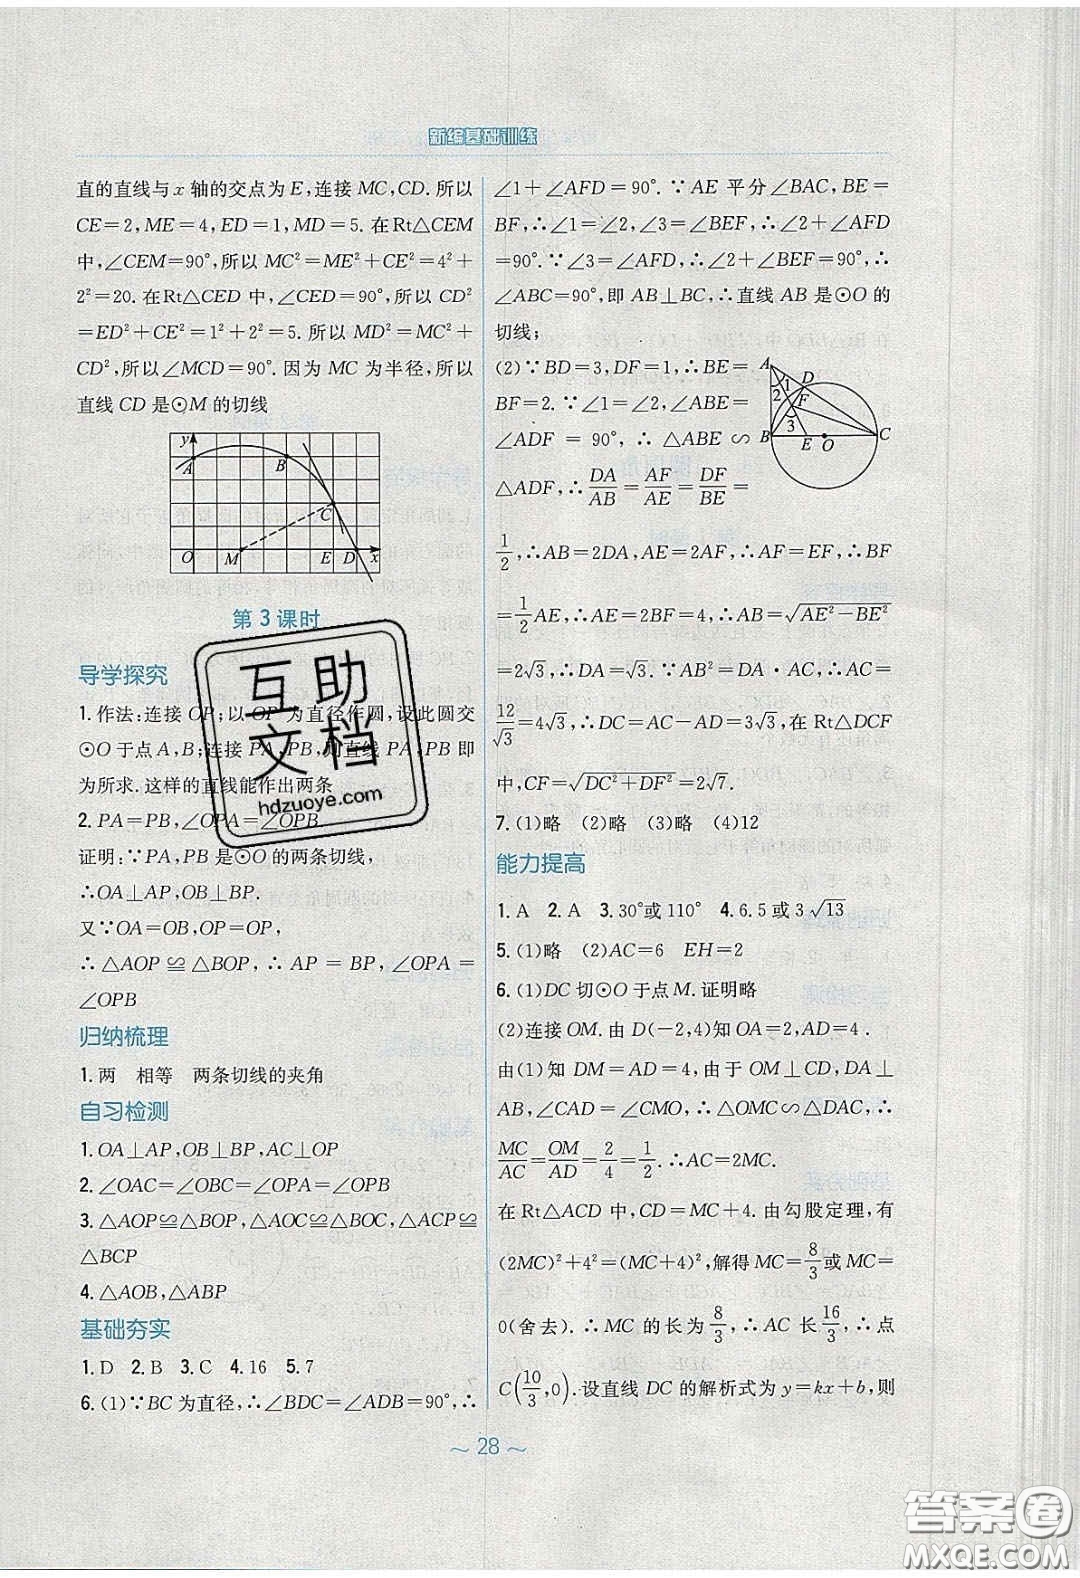 新编基础训练
直的直线与 x 轴的交点为 E,连接 MC,CD.所以
CE=2,ME=4,ED=1,MD=5.在Rt△CEM
中,∠CEM=90°,所以 MC²=ME²+CE²=4²+
2²=20.在Rt△CED 中,∠CED=90°,所以 CD²
=ED²+CE²=1²+2²=5.所以 MD²=MC²+
CD²,所以∠MCD=90°.因为 MC 为半径,所以
直线 CD 是⊙M 的切线
y
A
B
C
O
M
E
D
x
第 3 课时
导学探究
1.作法:连接 OP;以 OP 为直径作圆,设此圆交
⊙O 于点 A,B;连接 PA,PB,则直线 PA,PB 即
为所求.这样的直线能作出两条
2.PA=PB,∠OPA=∠OPB
证明:∵PA,PB 是⊙O 的两条切线,
∴OA⊥AP,OB⊥BP.
又∵OA=OB,OP=OP,
∴△AOP≌△BOP,∴AP=BP,∠OPA=
∠OPB
归纳梳理
1.两 相等 两条切线的夹角
自习检测
1.OA⊥AP,OB⊥BP,AC⊥OP
2.∠OAC=∠OBC=∠OPA=∠OPB
3.△AOP≌△BOP,△AOC≌△BOC,△ACP≌
△BCP
4.△AOB,△ABP
基础夯实
1.D 2.B 3.C 4.16 5.7
6.(1)∵BC 为直径,∴∠BDC=∠ADB=90°,∴
∠1+∠AFD=90°.∵AE 平分∠BAC,BE=
BF,∴∠1=∠2,∠3=∠BEF,∴∠2+∠AFD
=90°.∵∠3=∠AFD,∴∠2+∠BEF=90°,∴
∠ABC=90°,即 AB⊥BC,∴直线 AB 是⊙O 的
切线;
(2)∵BD=3,DF=1,∴BE=
BF=2.∵∠ABE=
∠ADF=90°,∴△ABE∽
△ADF,∴DA/AB=AF/AE=DF/BE=
A
1
2
D
F
3
B
E
O
C
1/2,∴AB=2DA,AE=2AF,∴AF=EF,∴BF
=1/2AE,∴AE=2BF=4,∴AB=√(AE²−BE²)
=2√3,∴DA=√3.∵AB²=DA·AC,∴AC=
12/√3=4√3,∴DC=AC−AD=3√3,在 Rt△DCF
中,CF=√(DC²+DF²)=2√7.
7.(1)略 (2)略 (3)略 (4)12
能力提高
1.A 2.A 3.30°或110° 4.6.5或3√13
5.(1)略 (2)AC=6 EH=2
6.(1)DC 切⊙O 于点 M.证明略
(2)连接 OM.由 D(−2,4)知 OA=2,AD=4.
由(1)知 DM=AD=4,由于 OM⊥CD,DA⊥
AB,∠CAD=∠CMO,∴△OMC∽△DAC,∴
MC/AC=OM/AD=2/4=1/2.∴AC=2MC.
在 Rt△ACD 中,CD=MC+4.由勾股定理,有
(2MC)²+4²=(MC+4)²,解得 MC=8/3或 MC=
0(舍去).∴MC 的长为8/3,∴AC 长16/3,∴点
C(10/3,0).设直线 DC 的解析式为 y=kx+b,则
~ 28 ~
互助
文档
hdzuoye.com
答案卷
MXQE.COM